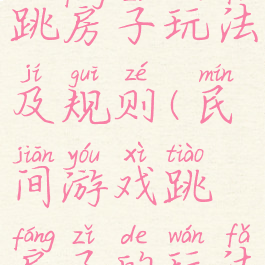 跳房子玩法
jí guī zé mín
及规则(民
jiān yóu xì tiào
间游戏跳
fáng zǐ de wán fǎ
房子的玩法